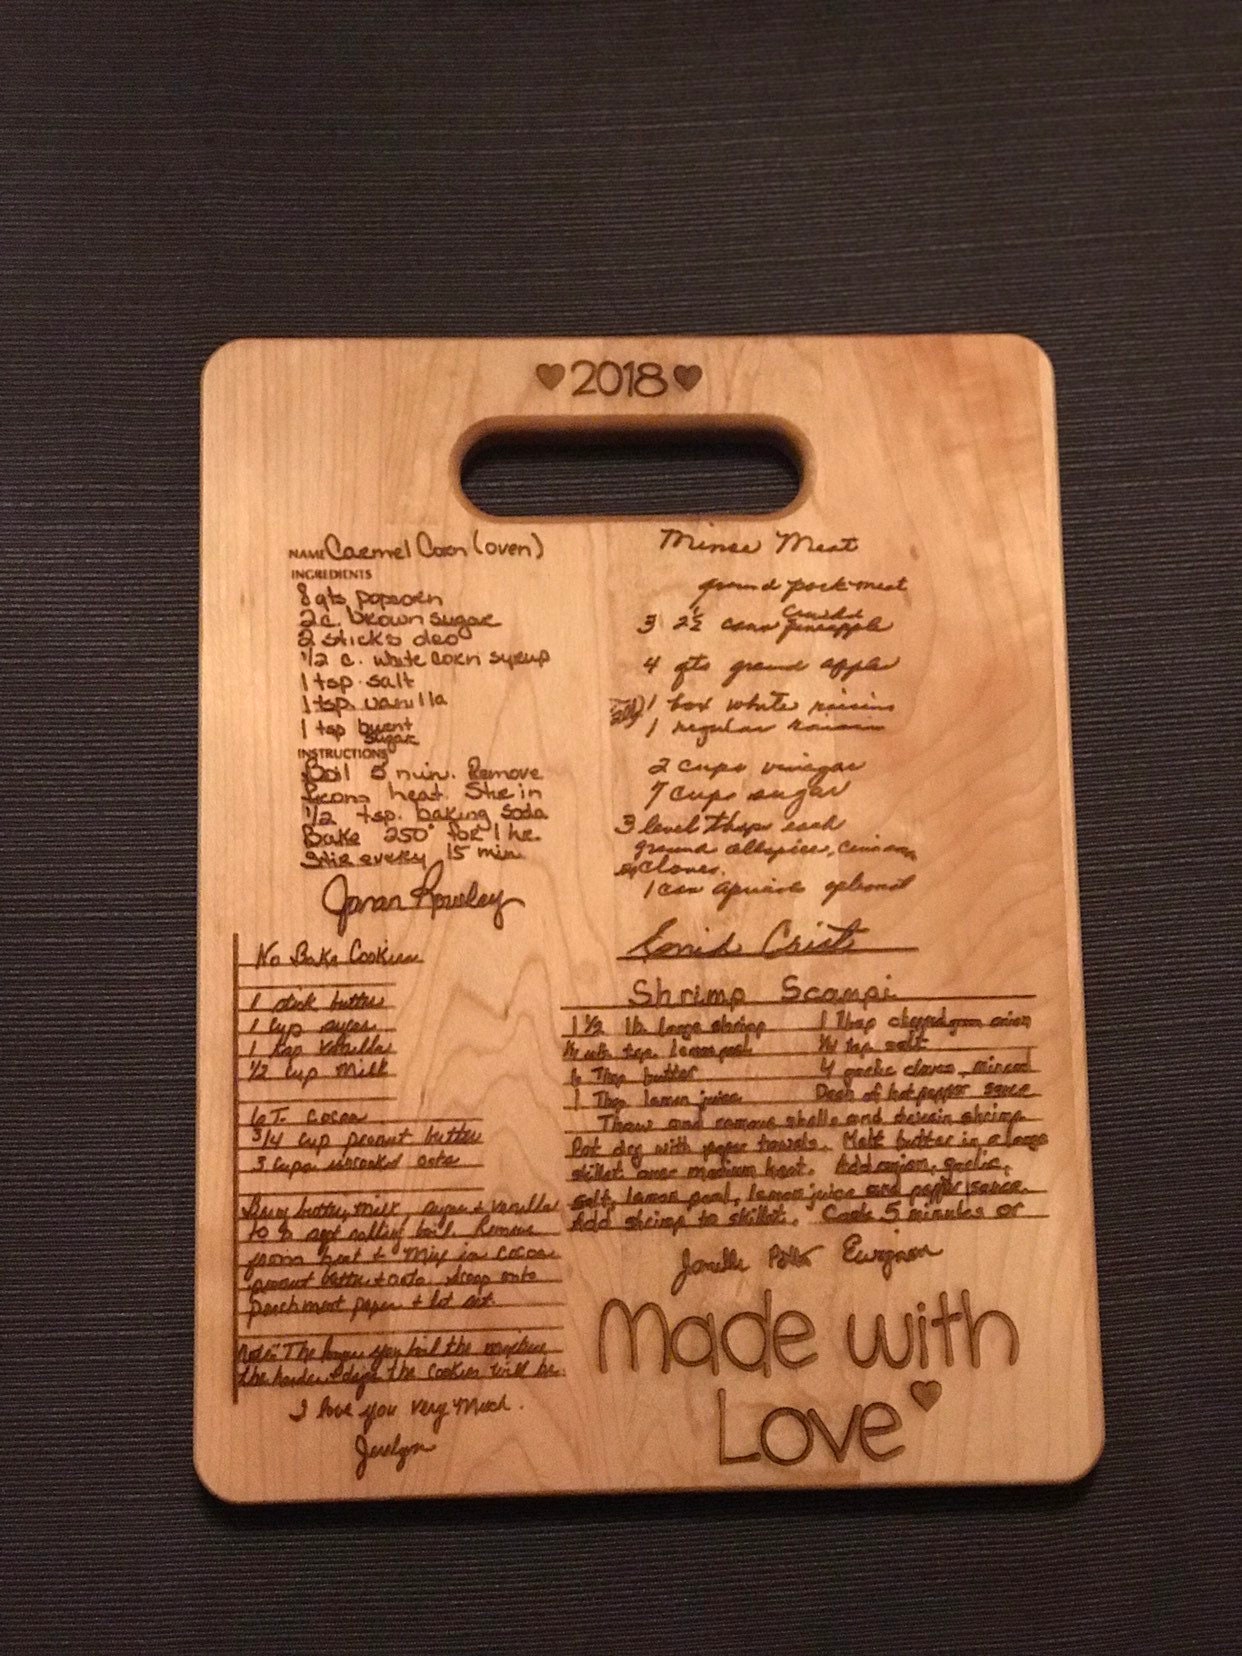 2018
NAME Carmel Corn (oven)
INGREDIENTS
8 qts popcorn
2 c. brown sugar
2 sticks oleo
1/2 c. white corn syrup
1 tsp. salt
1 tsp. vanilla
1 tsp burnt
sugar
INSTRUCTIONS
Boil 5 min. Remove
from heat. Stir in
1/2 tsp. baking soda
Bake 250° for 1 hr.
Stir every 15 min
Rowley
No Bake Cookies
1 stick butter
1 cup sugar
1 tsp vanilla
1/2 cup milk
6 T. cocoa
3/4 cup peanut butter
3 cups uncooked oats
Bring butter, milk, sugar & vanilla
to a rolling boil. Remove
from heat & mix in cocoa
peanut butter & oats. drop onto
parchment paper & let set.
Note: The longer you boil the mixture
the harder & the cookies will be.
I love you very much.
Mince Meat
ground pork meat
crushed
3 2 1/2 cans pineapple
4 qts ground apples
1 box white raisins
1 regular raisins
2 cups vinegar
7 cups sugar
3 level Tbsps each
ground allspice, cinnamon
cloves.
1 can apricots optional
Enid Crist
Shrimp Scampi
1 1/2 lb. large shrimp 1 Tbsp chopped green onion
tsp. lemon peel 1/4 tsp salt
6 Tbsp butter 4 garlic cloves, minced
1 Tbsp lemon juice Dash of hot pepper sauce
Thaw and remove shells and devein shrimp.
Pat dry with paper towels. Melt butter in a large
skillet over medium heat. Add onion, garlic,
salt, lemon peel, lemon juice and pepper sauce.
Add shrimp to skillet. Cook 5 minutes or
Made with
Love